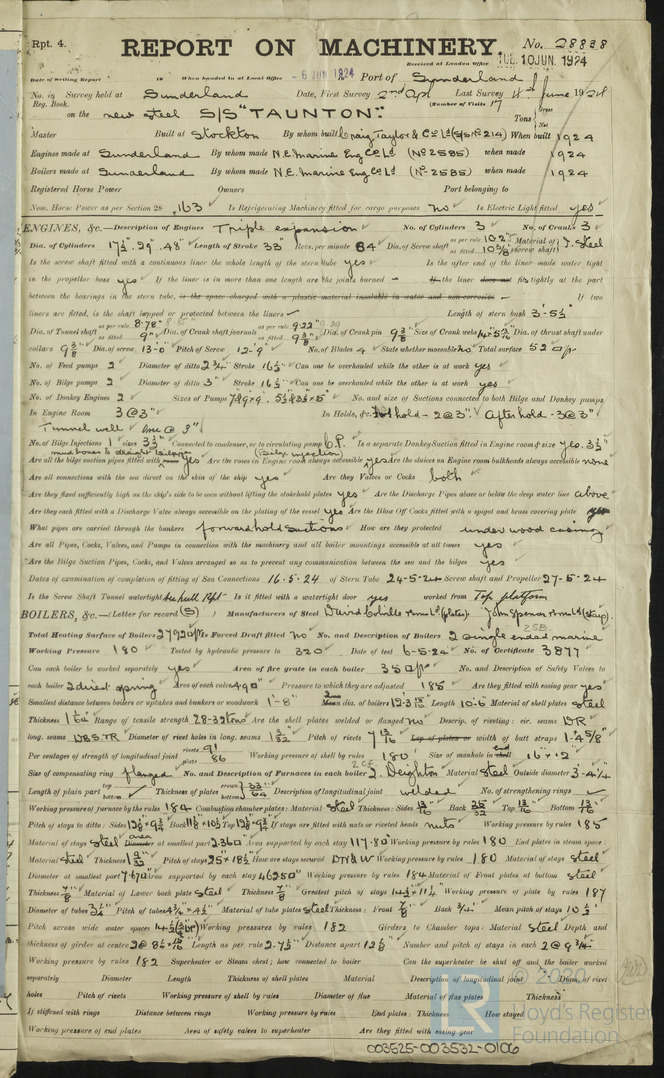 Rpt. 4.
REPORT ON MACHINERY. No. 28838
Received at London Office TUE. 10 JUN. 1924
Date of writing Report 19 When handed in at Local Office - 6 JUN 1924 Port of Sunderland
No. in Survey held at Sunderland Date, First Survey 2nd Apl Last Survey 4th June 1924
Reg. Book. (Number of Visits 17
on the new steel S/S "TAUNTON". Tons { Gross Net
Master Built at Stockton By whom built Craig Taylor & Co Ld (S/S No 214) When built 1924
Engines made at Sunderland By whom made N.E. Marine Eng Co Ld (No 2585) when made 1924
Boilers made at Sunderland By whom made N.E. Marine Eng Co Ld (No 2585) when made 1924
Registered Horse Power Owners Port belonging to
Nom. Horse Power as per Section 28 163 Is Refrigerating Machinery fitted for cargo purposes no Is Electric Light fitted yes
ENGINES, &c.—Description of Engines Triple expansion No. of Cylinders 3 No. of Cranks 3
Dia. of Cylinders 17½" 29" 48" Length of Stroke 33" Revs. per minute 84 Dia. of Screw shaft as per rule 10.2" as fitted 10⅝" Material of screw shaft I. Steel
Is the screw shaft fitted with a continuous liner the whole length of the stern tube yes Is the after end of the liner made water tight
in the propeller boss yes If the liner is in more than one length are the joints burned – If the liner does not fit tightly at the part
between the bearings in the stern tube, is the space charged with a plastic material insoluble in water and non-corrosive – If two
liners are fitted, is the shaft lapped or protected between the liners ✓ Length of stern bush 3'-5½"
Dia. of Tunnel shaft as per rule 8.78" as fitted 9" Dia. of Crank shaft journals as per rule 9.22" as fitted 9⅜" Dia. of Crank pin 9⅜" Size of Crank webs Dia. of thrust shaft under
collars 9⅜" Dia. of screw 13'-0" Pitch of Screw 12'-9" No. of Blades 4 State whether moveable no Total surface 52 □ft
No. of Feed pumps 2 Diameter of ditto 2¾" Stroke 16½" Can one be overhauled while the other is at work yes
No. of Bilge pumps 2 Diameter of ditto 3" Stroke 16½" Can one be overhauled while the other is at work yes
No. of Donkey Engines 2 Sizes of Pumps No. and size of Suctions connected to both Bilge and Donkey pumps
In Engine Room 3 @ 3" In Holds, &c. Fore hold - 2 @ 3". After hold - 3 @ 3"
Tunnel well One @ 3"
No. of Bilge Injections 1 sizes 3½" Connected to condenser, or to circulating pump C.P. Is a separate Donkey Suction fitted in Engine room & size yes. 3½"
Are all the bilge suction pipes fitted with roses yes Are the roses in Engine room always accessible yes Are the sluices on Engine room bulkheads always accessible none
Are all connections with the sea direct on the skin of the ship yes Are they Valves or Cocks both
Are they fixed sufficiently high on the ship's side to be seen without lifting the stokehold plates yes Are the Discharge Pipes above or below the deep water line above
Are they each fitted with a Discharge Valve always accessible on the plating of the vessel yes Are the Blow Off Cocks fitted with a spigot and brass covering plate yes
What pipes are carried through the bunkers forward hold suctions How are they protected under wood casing
Are all Pipes, Cocks, Valves, and Pumps in connection with the machinery and all boiler mountings accessible at all times yes
Are the Bilge Suction Pipes, Cocks, and Valves arranged so as to prevent any communication between the sea and the bilges yes
Dates of examination of completion of fitting of Sea Connections 16.5.24 of Stern Tube 24-5-24 Screw shaft and Propeller 27-5-24
Is the Screw Shaft Tunnel watertight See hull Rpt Is it fitted with a watertight door yes worked from Top platform
BOILERS, &c.—(Letter for record (S)) Manufacturers of Steel David Colville & Sons Ld (plates). John Spencer & Sons Ld (stays).
Total Heating Surface of Boilers 2792 □ft Is Forced Draft fitted no No. and Description of Boilers 2 single ended marine 2SB
Working Pressure 180 Tested by hydraulic pressure to 320 Date of test 6-5-24 No. of Certificate 3877
Can each boiler be worked separately yes Area of fire grate in each boiler 35 □ft No. and Description of Safety Valves to
each boiler 2 direct spring Area of each valve 4.90" Pressure to which they are adjusted 185 Are they fitted with easing gear yes
Smallest distance between boilers or uptakes and bunkers or woodwork 1'-8" Mean dia. of boilers Length 10-6 Material of shell plates steel
Thickness Range of tensile strength 28-32 tons Are the shell plates welded or flanged no Descrip. of riveting: cir. seams DR
long. seams DBS.TR Diameter of rivet holes in long. seams 1 3/32 Pitch of rivets 7 13/16 Lap of plates or width of butt straps 1-4⅝"
Per centages of strength of longitudinal joint rivets 91 plate 86 Working pressure of shell by rules 180 Size of manhole in end 16" × 12"
Size of compensating ring flanged No. and Description of Furnaces in each boiler 2. Deighton Material Steel Outside diameter 3'-4¼"
Length of plain part top bottom ✓ Thickness of plates crown bottom 33/64 Description of longitudinal joint welded No. of strengthening rings ✓
Working pressure of furnace by the rules 184 Combustion chamber plates: Material Steel Thickness: Sides Back Top Bottom
Pitch of stays to ditto: Sides Back Top If stays are fitted with nuts or riveted heads nuts Working pressure by rules 185
Material of stays Steel area Diameter at smallest part 2.36□" Area supported by each stay 117.80" Working pressure by rules 180 End plates in steam space:
Material steel Thickness 1 3/32 Pitch of stays 25" × 18½ How are stays secured DN&W Working pressure by rules 180 Material of stays steel
Diameter at smallest part 7.67□" Area supported by each stay 462.50" Working pressure by rules 184 Material of Front plates at bottom steel
Thickness ⅞" Material of Lower back plate Steel Thickness ⅞" Greatest pitch of stays Working pressure of plate by rules 187
Diameter of tubes 3¼" Pitch of tubes Material of tube plates steel Thickness: Front ⅞" Back ¾" Mean pitch of stays 10½"
Pitch across wide water spaces Working pressures by rules 182 Girders to Chamber tops: Material Steel Depth and
thickness of girder at centre Length as per rule 2-7½" Distance apart 12½" Number and pitch of stays in each 2 @ 9¾"
Working pressure by rules 182 Superheater or Steam chest; how connected to boiler Can the superheater be shut off and the boiler worked
separately Diameter Length Thickness of shell plates Material Description of longitudinal joint Diam. of rivet
holes Pitch of rivets Working pressure of shell by rules Diameter of flue Material of flue plates Thickness
If stiffened with rings Distance between rings Working pressure by rules End plates: Thickness How stayed
Working pressure of end plates Area of safety valves to superheater Are they fitted with easing gear
© 2020
Lloyd's Register
Foundation
003525-003532-0106